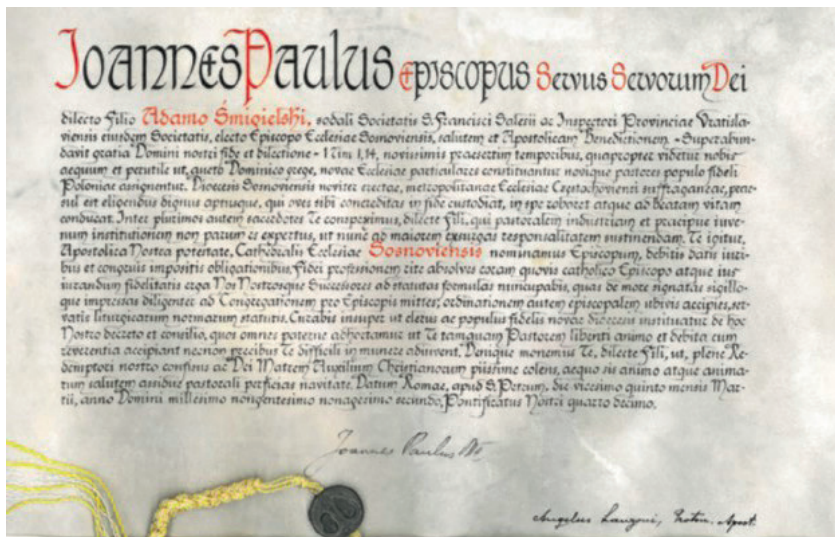 Joannes Paulus Episcopus Servus Servorum Dei
dilecto filio Adamo Śmigielski, sodali Societatis S. Francisci Salesii ac Inspectori Provinciae Vratisla-
viensis eiusdem Societatis, electo Episcopo Ecclesiae Sosnoviensis, salutem et Apostolicam Benedictionem - Superabun-
davit gratia Domini nostri fide et dilectione - 1 Tim 1,14, novissimis praesertim temporibus, quapropter videtur nobis
aequum et perutile ut, aucto Dominico grege, novae Ecclesiae particulares constituantur novique pastores populo fideli
Poloniae assignentur. Dioecesis Sosnoviensis noviter erectae, metropolitanae Ecclesiae Częstochoviensi suffraganeae, prae-
sul est eligendus dignus aptusque, qui oves sibi concreditas in fide custodiat, in spe roboret atque ad beatam vitam
conducat. Inter plurimos autem sacerdotes Te conspeximus, dilecte fili, qui pastoralem industriam et praecipue iuve-
num institutionem non parum es expertus, ut nunc ad maiorem exurgas responsalitatem sustinendam. Te igitur,
Apostolica Nostra potestate, Cathedralis Ecclesiae Sosnoviensis nominamus Episcopum, debitis datis iuri-
bus et congruis impositis obligationibus. Fidei professionem rite absolves coram quovis catholico Episcopo atque ius
iurandum fidelitatis erga Nos Nostrosque Successores ad statutas formulas nuncupabis, quas de more signatas sigillo-
que impressas diligenter ad Congregationem pro Episcopis mittes; ordinationem autem episcopalem ubivis accipies, ser-
vatis liturgicarum normarum statutis. Curabis insuper ut clerus ac populus fidelis novae dioecesis instituatur de hoc
Nostro decreto et consilio, quos omnes paterne adhortamur ut Te tamquam Pastorem libenti animo et debita cum
reverentia accipiant necnon precibus Te difficili in munere adiuvent. Denique monemus Te, dilecte Fili, ut, plene Re-
demptori nostro confisus ac Dei Matrem Auxilium Christianorum piissime colens, aequo sis animo atque anima-
rum salutem assidue pastorali perficias navitate. Datum Romae, apud S. Petrum, die vicesimo quinto mensis Mar-
tii, anno Domini millesimo nongentesimo nonagesimo secundo, Pontificatus Nostri quarto decimo.
Joannes Paulus
Angelus Lanzoni, Proton. Apost.